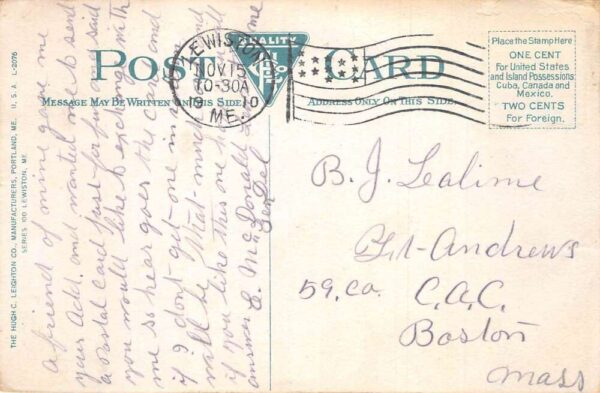 THE HUGH C. LEIGHTON CO., MANUFACTURERS, PORTLAND, ME. U. S. A. L-2076
SERIES 100 LEWISTON, ME.
POST CARD
QUALITY
MESSAGE MAY BE WRITTEN ON THIS SIDE
ADDRESS ONLY ON THIS SIDE
LEWISTON
NOV 15
10-30A
19 10
ME.
Place the Stamp Here
ONE CENT
For United States
and Island Possessions:
Cuba, Canada and
Mexico.
TWO CENTS
For Foreign.
a friend of mine gave me
your Add. and wanted me to send
a Postal Card just for fun and said
you would like to exchange with
me so hear goes the card and
if I dont get one in return
will be that mind
if you like this one
answer E. McDonald me
Gen Del
B. J. Lalime
Ft-Andrews
59. Co. C.A.C.
Boston
Mass